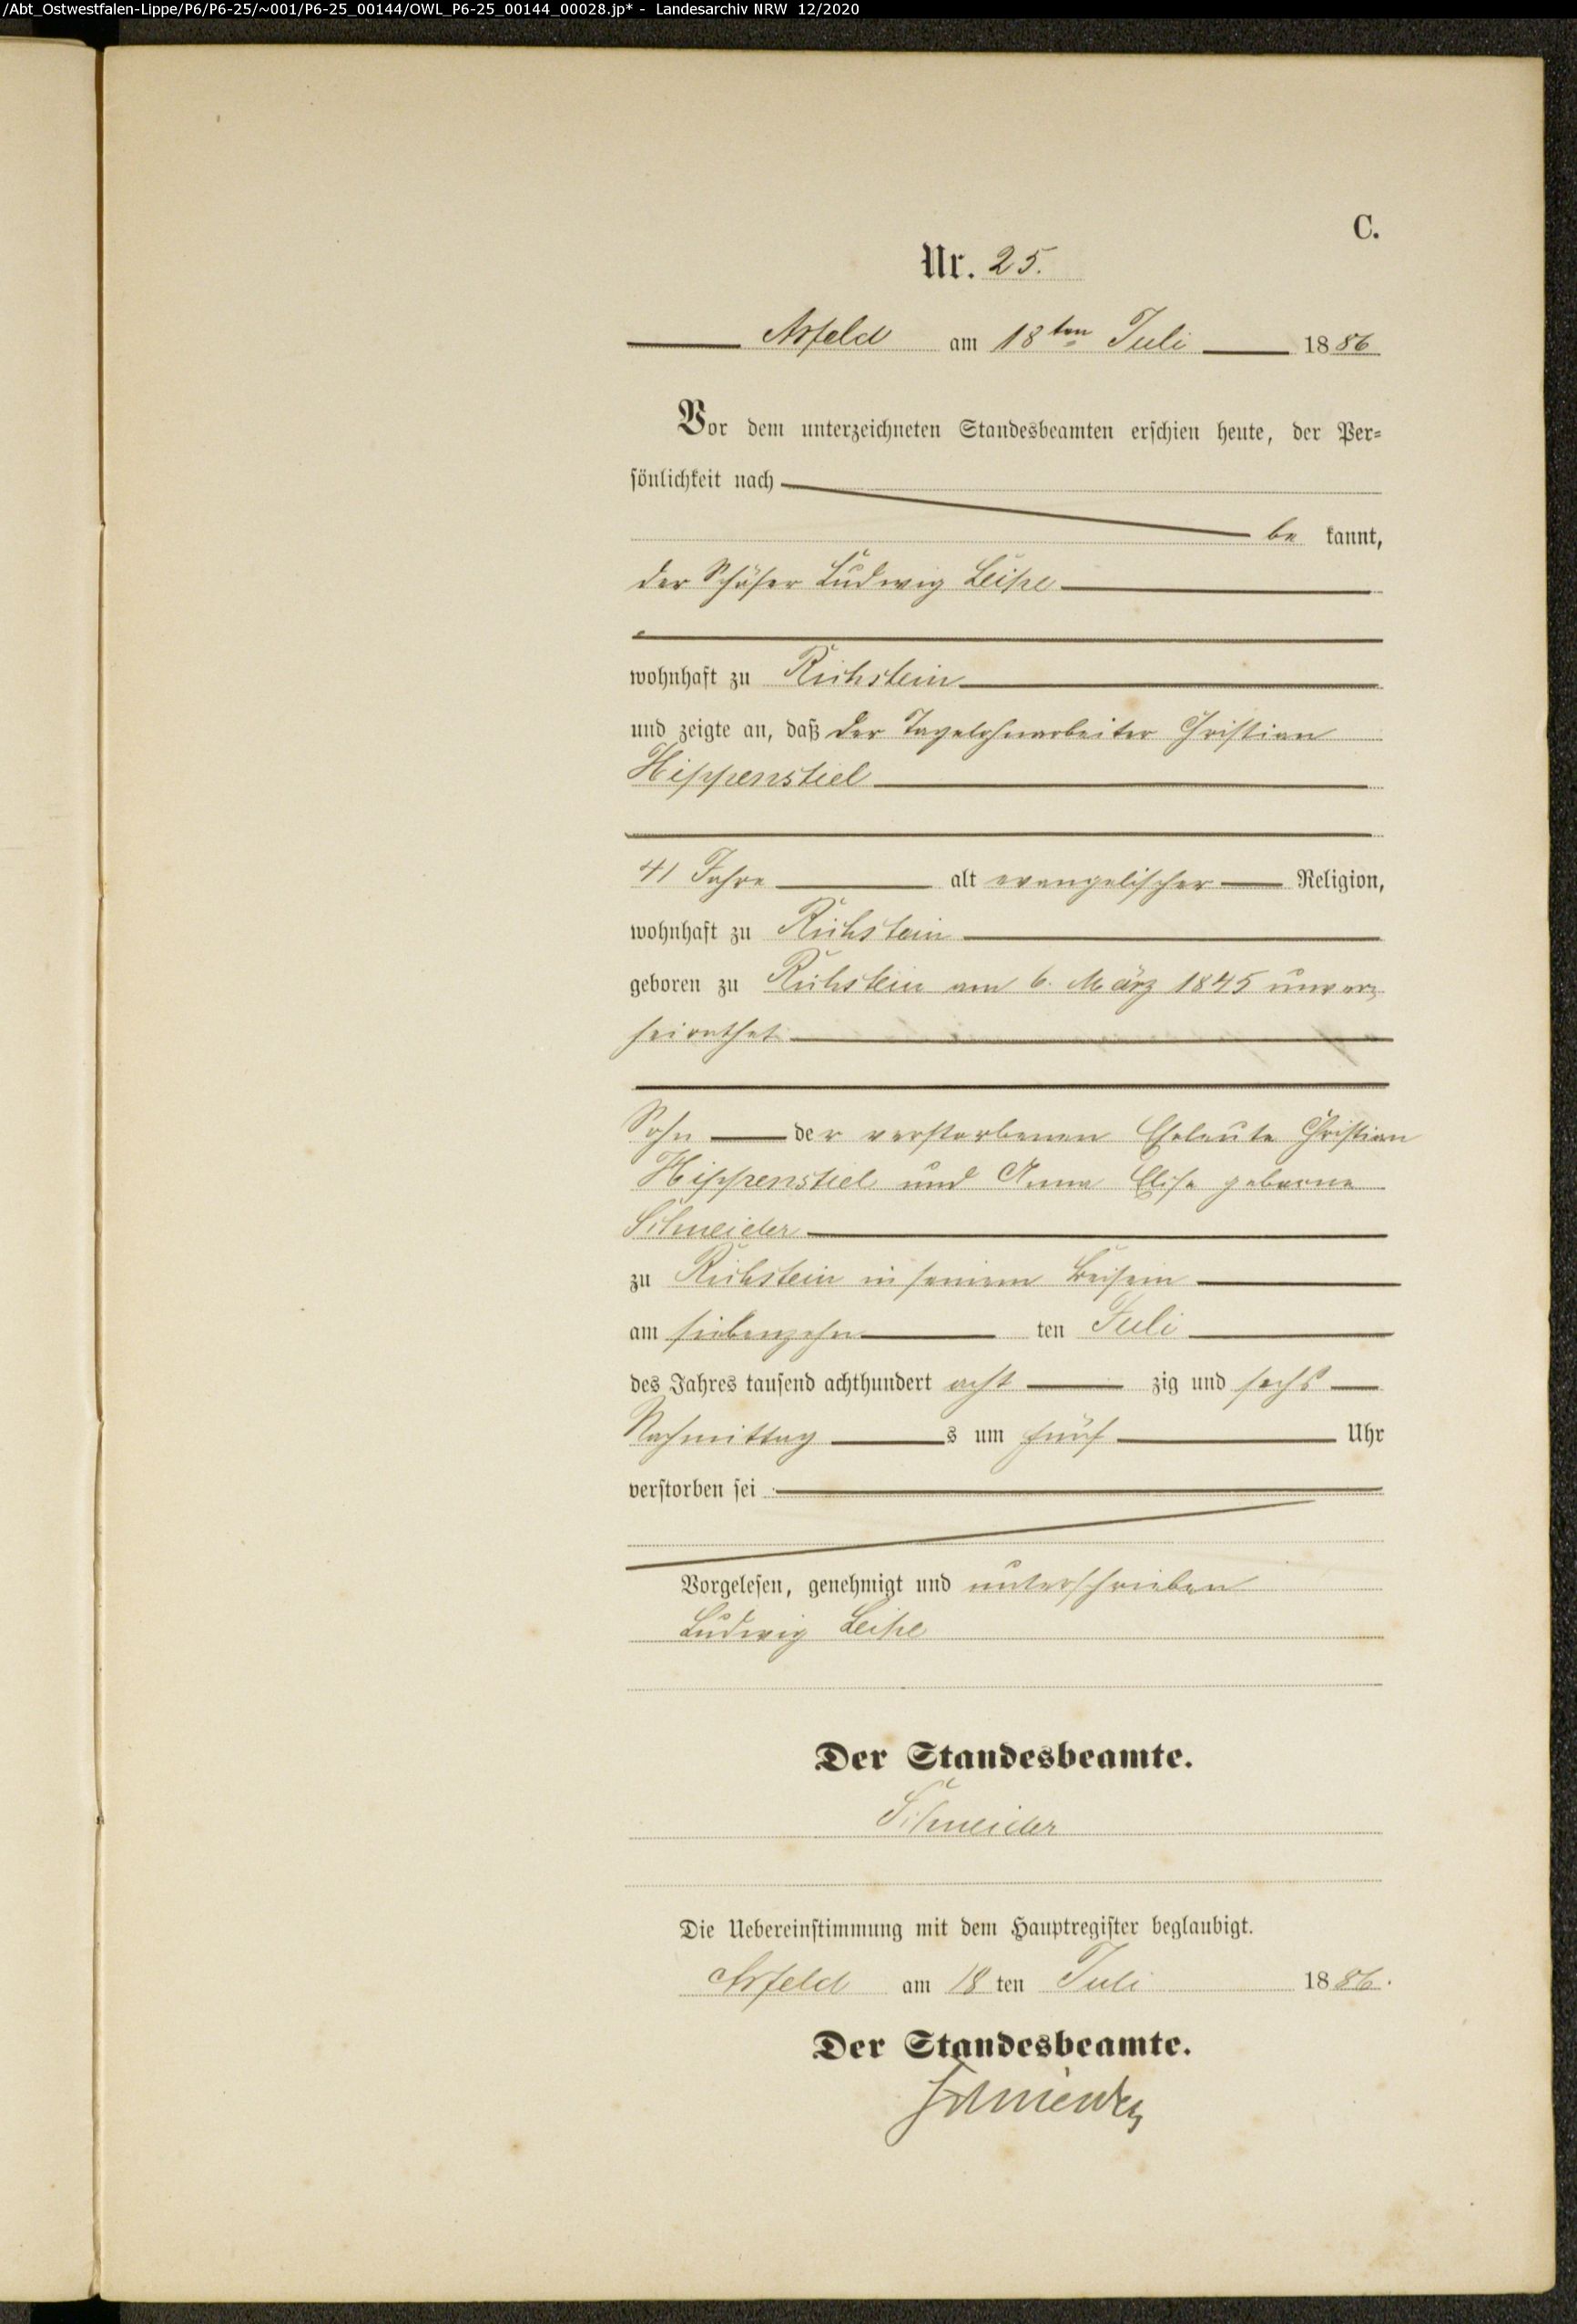 /Abt_Ostwestfalen-Lippe/P6/P6-25/~001/P6-25_00144/OWL_P6-25_00144_00028.jp* - Landesarchiv NRW 12/2020
C.
Nr. 25.
Arfeld am 18ten Juli 1886
Vor dem unterzeichneten Standesbeamten erschien heute, der Per-
sönlichkeit nach
be kannt,
der Schäfer Ludwig
wohnhaft zu Richstein
und zeigte an, daß der Tagelohnarbeiter Christian
Hippenstiel
41 Jahre alt evangelischer Religion,
wohnhaft zu Richstein
geboren zu Richstein am 6. März 1845 unver-
heirathet
Sohn der verstorbenen Eheleute Christian
Hippenstiel und Anna Elise geborne
Schneider
zu Richstein in seinem Beisein
am siebenzehn ten Juli
des Jahres tausend achthundert acht zig und sechs
Nachmittag s um fünf Uhr
verstorben sei
Vorgelesen, genehmigt und unterschrieben
Ludwig
Der Standesbeamte.
Schneider
Die Uebereinstimmung mit dem Hauptregister beglaubigt.
Arfeld am 18 ten Juli 1886.
Der Standesbeamte.
Schneider